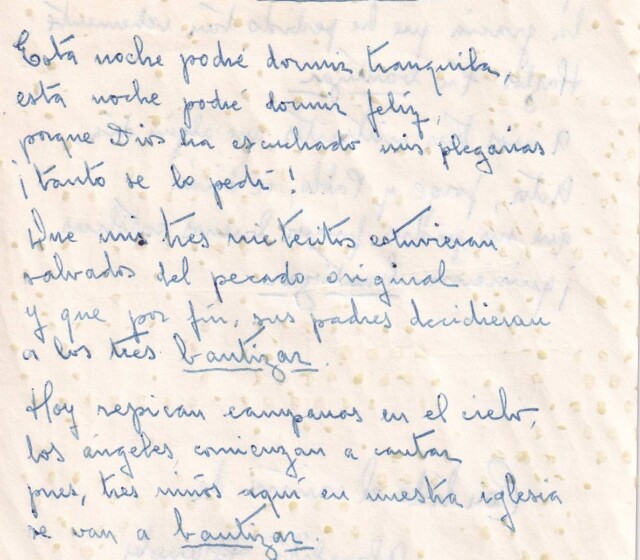 Está noche podré dormir tranquila,
está noche podré dormir felíz,
porque Dios ha escuchado mis plegarias
¡tanto se lo pedí!
Que mis tres nietecitos estuvieran
salvados del pecado original
y que por fin, sus padres decidieran
a los tres bautizar.
Hoy repican campanas en el cielo,
los ángeles, comienzan a cantar
pues, tres niños aquí en nuestra iglesia
se van a bautizar.